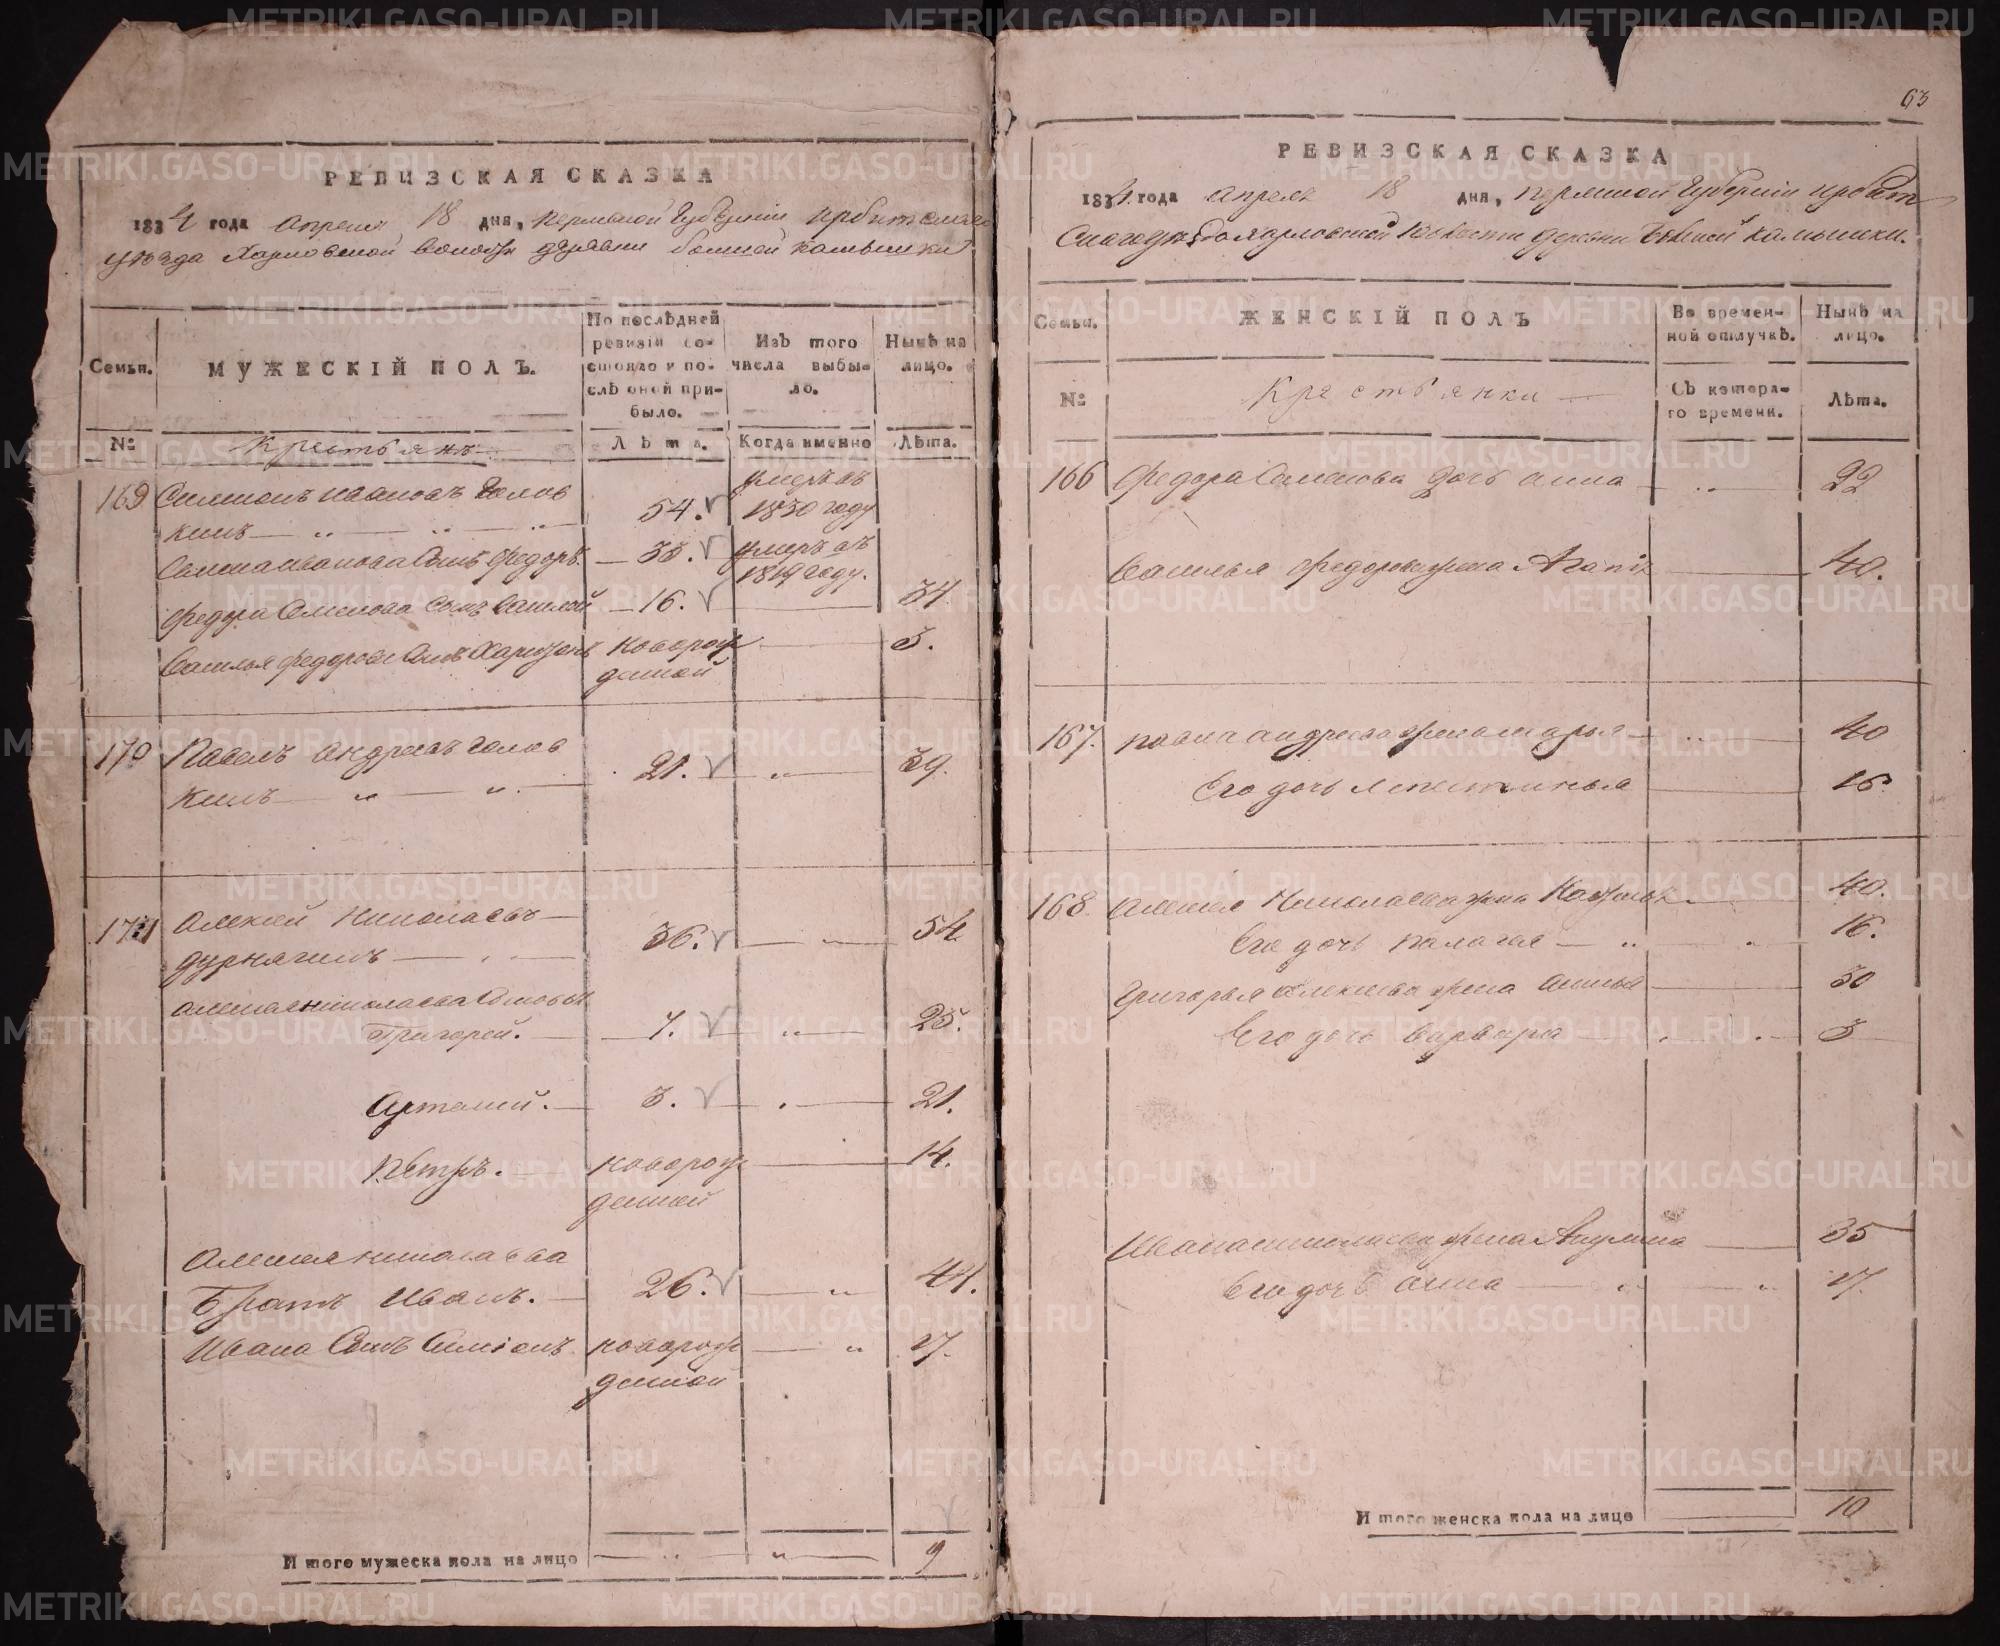 63
РЕВИЗСКАЯ СКАЗКА
1834 года апреля 18 дня, пермской Губернiи ирбитскаго
уѣзда Харловской волости деревни большей камышки
Семьи.
МУЖЕСКIЙ ПОЛЪ.
По послѣдней ревизiи состояло и послѣ оной прибыло.
Изъ того числа выбыло.
Нынѣ на лицо.
№
Крестьянъ
Лѣта.
Когда именно
Лѣта.
169 Симионъ ивановъ Голов
кинъ 54. умеръ въ 1830 году
Семиона иванова Сынъ Федоръ. 35. умеръ въ 1819 году.
Федора Семенова Сынъ Василей 16. 34.
Василья Федорова Сынъ новорож
денной 5.
170 Павелъ андреевъ Голов
кинъ 21. 39.
171 Алексей николаевъ
дурнягинъ 36. 54.
алексея николаева Сыновья
Григорей. 7. 25.
Артемий. 3. 21.
Петръ. новорож 14.
денной
Алексея николаева
братъ Иванъ. 26. 44.
Ивана Сынъ Симионъ новорож 17.
денной
Итого мужеска пола на лицо 9
РЕВИЗСКАЯ СКАЗКА
1834 года апреля 18 дня, пермской Губернiи ирбит
Скаго харловской волости деревни большей камышки.
Семьи.
ЖЕНСКIЙ ПОЛЪ
Во временной отлучкѣ.
Нынѣ на лицо.
№
Крестьянки
Съ котораго времени.
Лѣта.
166 Федора Семенова дочь анна 22
Василья федорова жена Агапiя 40.
167. павла андреева жена марья 40
Его дочь 16.
168 Алексея Николаева жена 40.
Его дочь палагея 16.
Григорья алексеева жена 30
Его дочь варвара 3
Ивана николаева жена Акулина 35
Его дочь анна 17.
Итого женска пола на лицо 10
METRIKI.GASO-URAL.RU